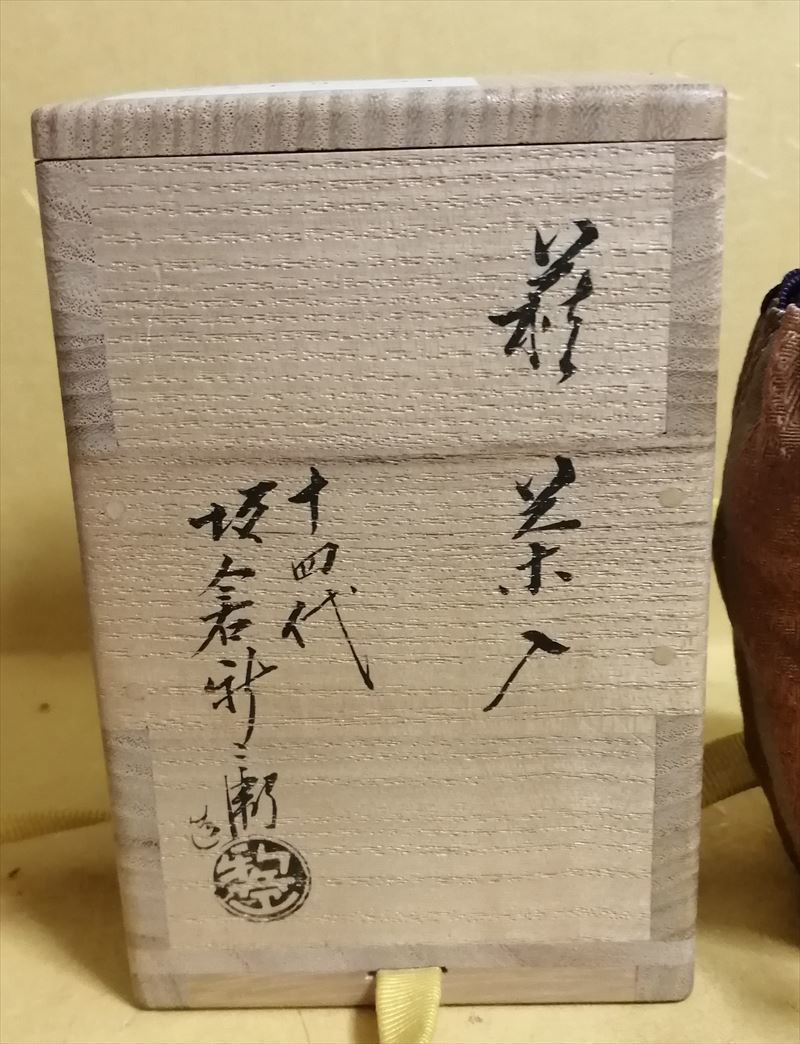 萩
茶入
十四代
坂倉新兵衛
造